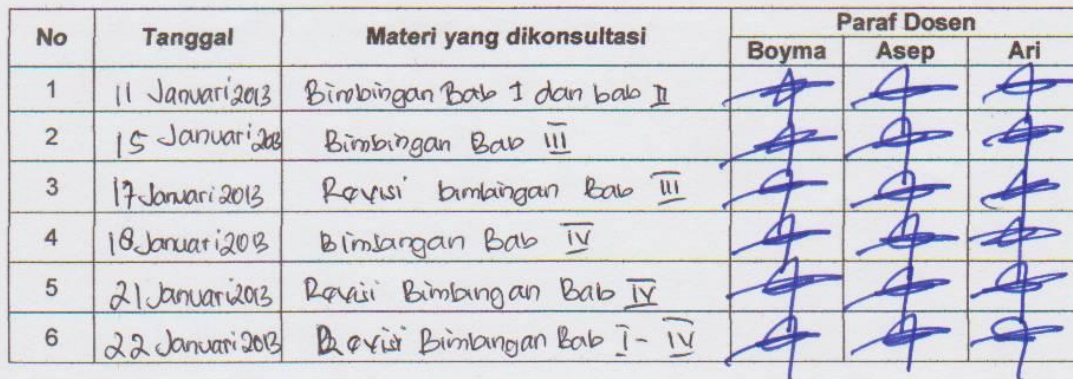 No Tanggal Materi yang dikonsultasi Paraf Dosen
Boyma Asep Ari
1 11 Januari 2013 Bimbingan Bab I dan bab II
2 15 Januari 2013 Bimbingan Bab III
3 17 Januari 2013 Revisi bimbingan Bab III
4 18 Januari 2013 Bimbingan Bab IV
5 21 Januari 2013 Revisi Bimbingan Bab IV
6 22 Januari 2013 Revisi Bimbingan Bab I - IV